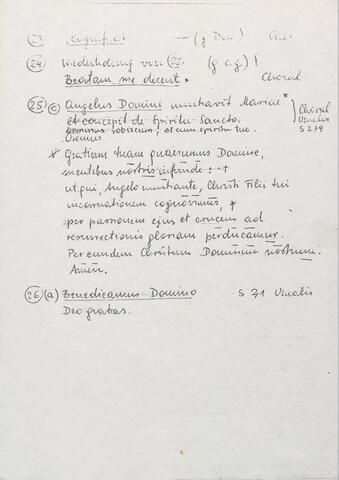 23 Magnificat
24 Wiederholung von 22 (g a g)
Beatam me dicent * Choral
25 c Angelus Domini nuntiavit Mariae * Choral
et concepit de Spiritu Sancto. Vesperalis
Dominus vobiscum, et cum spiritu tuo. S 279
Oremus
Gratiam tuam quaesumus Domine,
mentibus nostris infunde: +
ut qui, Angelo nuntiante, Christi Filii tui
incarnationem cognovimus, *
per passionem ejus et crucem ad
resurrectionis gloriam perducamur.
Per eundem Christum Dominum nostrum.
Amen.
26 (a) Benedicamus Domino S 71
Deo gratias.